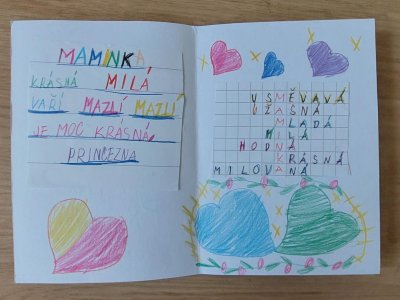 MAMINKA
KRÁSNÁ MILÁ
VAŘÍ MAZLÍ MATLÍ
JE MOC KRÁSNÁ
PRINCEZNA
USMĚVAVÁ
ÚŽASNÁ
MLADÁ
MILÁ
HODNÁ
KRÁSNÁ
MILOVANÁ